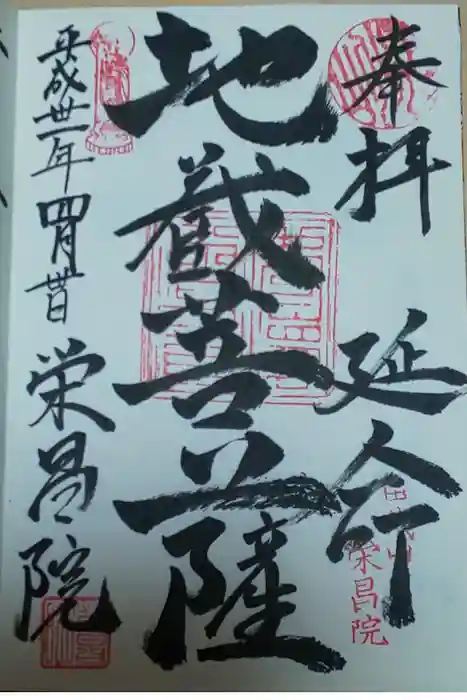 奉拝 延命
栄昌院
地蔵菩薩
平成卅一年四月廿日 栄昌院